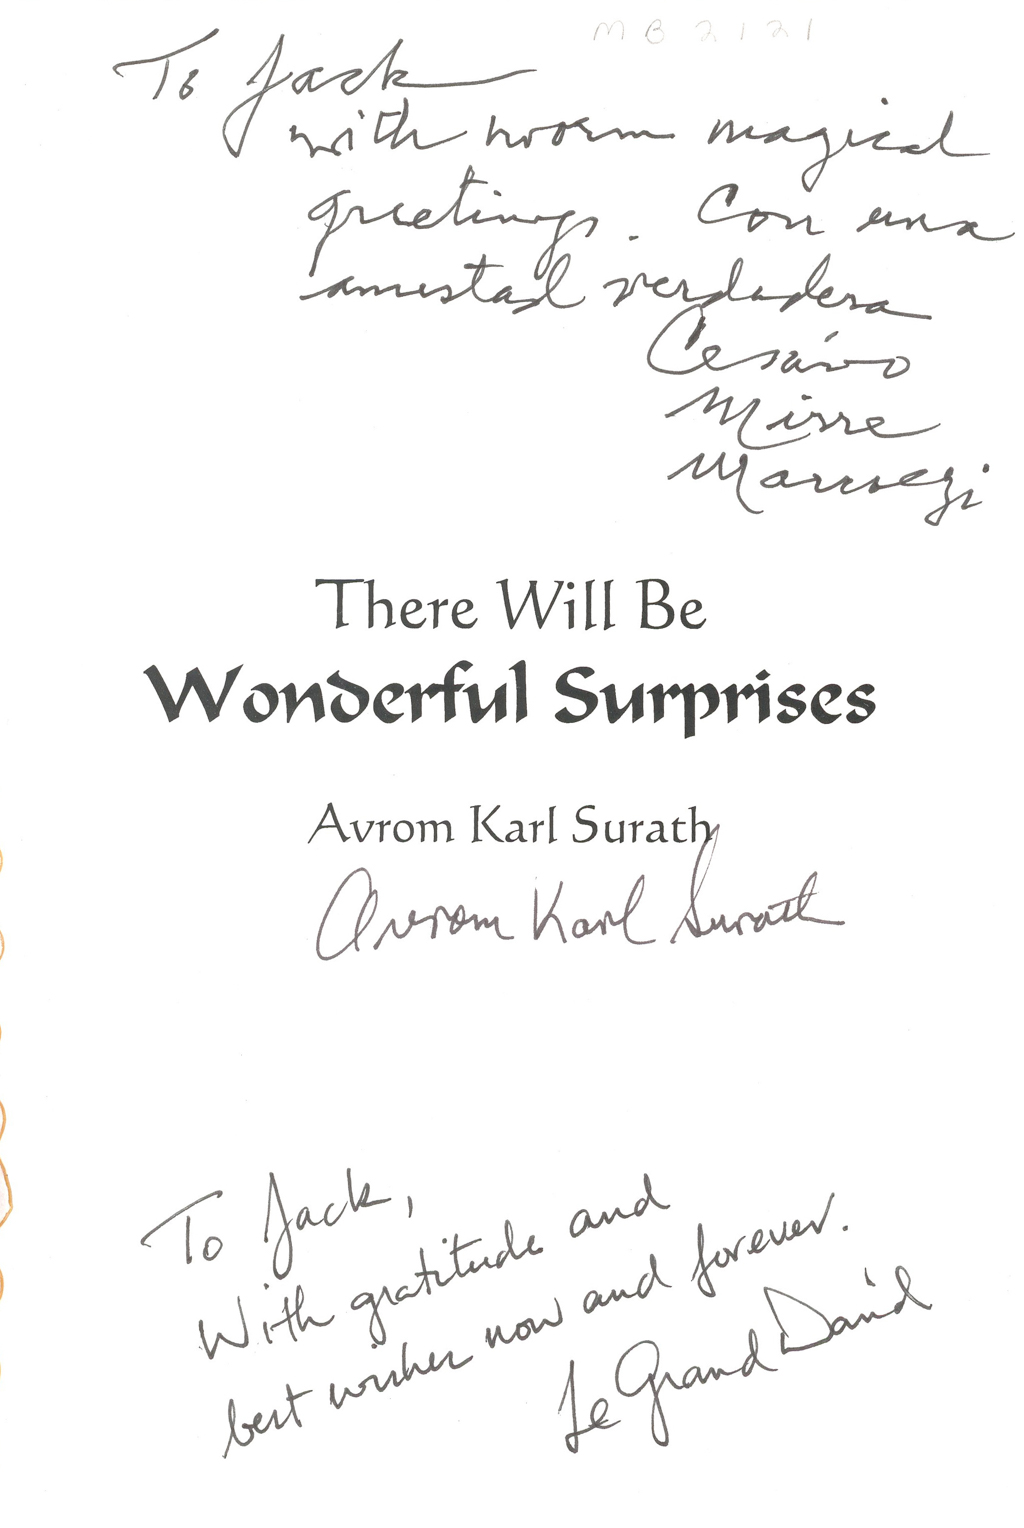 MB2121
To Jack
with warm magical
greetings. Con una
amistad verdadera
Cesáreo
Marre
Marcuegi
There Will Be
Wonderful Surprises
Avrom Karl Surath
Avrom Karl Surath
To Jack,
With gratitude and
best wishes now and forever.
Le Grand David